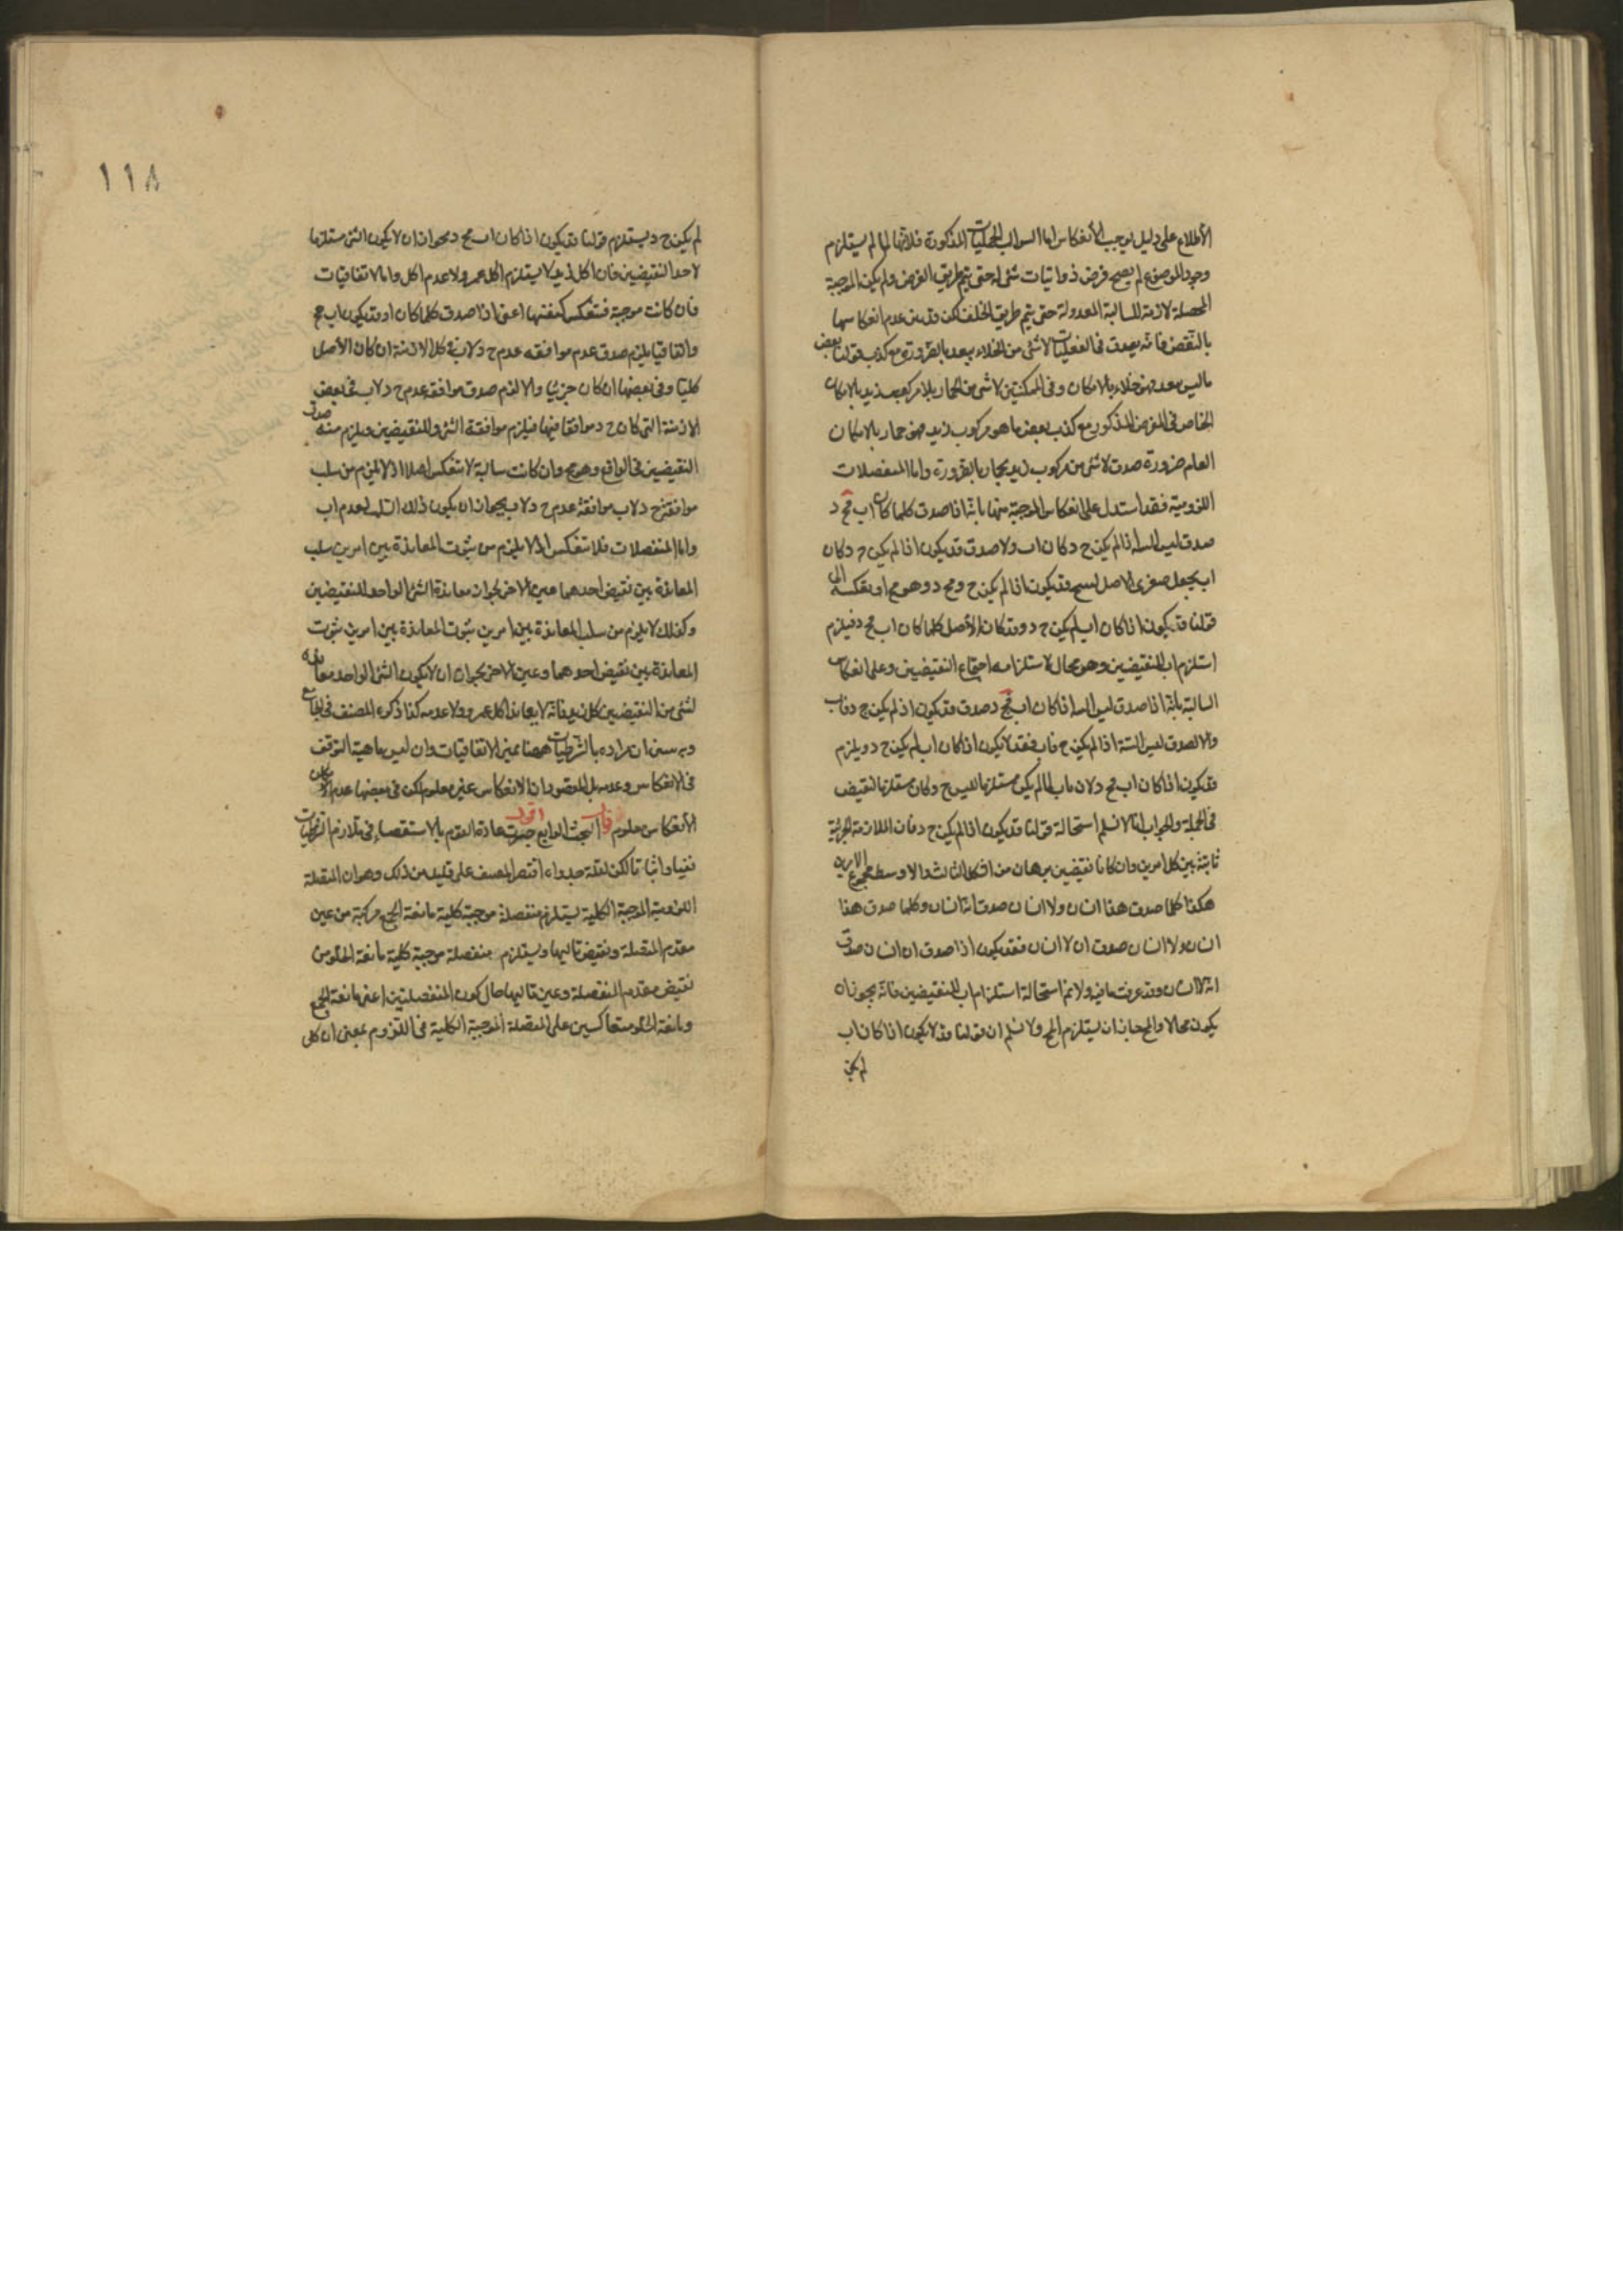 الاطلاع على دليل يوجب الانعكاس اما السوالب الحمليات المذكورة فلانها لما لم يستلزم
وجود الموضوع لم يصح فرض ذوا تيات شئ له حتى يتم طريق الفرض ولم يكن الموجبة
المحصلة لازمة للسالبة المعدولة حتى يتم طريق الخلف لكن قد بين عدم انعكاسها
بالنقض فانه يصدق فى الفعليات لا شئ من الخلاء ببعد بالضرورة مع كذب قولنا بعض
ما ليس ببعد فهو خلاء بالامكان وفى الممكنتين لا شئ من الحمار بلا مركوب زيد بالامكان
الخاص فى الفرض المذكور مع كذب بعض ما هو مركوب زيد فهو حمار بالامكان
العام ضرورة صدق لا شئ من مركوب زيد بحمار بالضرورة واما المتصلات
اللزومية فقد استدل على انعكاس الموجبة منها بانه اذا صدق كلما كان اب فج د
صدق ليس البتة اذا لم يكن ج د كان اب والا صدق قد يكون اذا لم يكن ج د كان
اب يجعل صغرى للاصل لينتج قد يكون اذا لم يكن ج د فج د وهو مح او نعكسه الى
قولنا قد يكون اذا كان اب لم يكن ج د وقد كان الاصل كلما كان اب فج د فيلزم
استلزام اب للنقيضين وهو محال لاستلزامه اجتماع النقيضين وعلى انعكاس
السالبة بانه اذا صدق ليس البتة اذا كان اب فج د صدق قد يكون اذا لم يكن ج د فاب
والا لصدق ليس البتة اذا لم يكن ج د فاب فقد لا يكون اذا كان اب لم يكن ج د ويلزم
قد يكون اذا كان اب فج د لان اب لما لم يكن مستلزما لليس ج د كان مستلزما لنقيض
فى الجملة والجواب انا لا نسلم استحالة قولنا قد يكون اذا لم يكن ج د فان الملازمة الجزئية
ثابتة بين كل امرين وان كانا نقيضين ببرهان من الشكل الثالث والاوسط مجموع الامرين
هكذا كلما صدق هذا انسان ولا انسان صدق انه انسان وكلما صدق هذا
انسان ولا انسان صدق انه لا انسان فقد يكون اذا صدق انه انسان صدق
انه لا انسان وقد عرفت ما فيه ولا نم استحالة استلزام اب للنقيضين فانه يجوز ان
يكون محالا والمح جاز ان يستلزم المح ولا نسلم ان قولنا قد لا يكون اذا كان اب
لم يكن
١١٨
لم يكن ج د يستلزم قولنا قد يكون اذا كان اب فج د بجواز ان لا يكون الشئ مستلزما
لاحد النقيضين فان اكل زيد لا يستلزم اكل عمرو ولا عدم اكله واما الاتفاقيات
فان كانت موجبة فتنعكس كنفسها اعنى اذا صدق كلما كان او قد يكون اب فج
د اتفاقيا يلزم صدق عدم موافقه عدم ج د لاب فى كل الازمنة ان كان الاصل
كليا وفى بعضها ان كان جزئيا والا لزم صدق موافقة عدم ج د لاب فى بعض
الازمنة التى كان ج د موافقا فيها فيلزم موافقة الشئ للنقيضين ويلزم منه صدق
النقيضين فى الواقع وهو مح وان كانت سالبة لا تنعكس اصلا اذ لا يلزم من سلب
موافقة ج د لاب موافقة عدم ج د لاب بجواز ان يكون ذلك السلب لعدم اب
واما المنفصلات فلا تنعكس اذ لا يلزم من ثبوت المعاندة بين امرين سلب
المعاندة بين نقيض احدهما وعين الاخر بجواز معاندة الشئ الواحد للنقيضين
وكذلك لا يلزم من سلب المعاندة بين امرين ثبوت المعاندة بين امرين ثبوت
المعاندة بين نقيض احدهما وعين الاخر بجواز ان لا يكون الشئ الواحد معاندا
لشئ من النقيضين كاكل زيد فانه لا يعاند اكل عمرو ولا عدمه كذا ذكره المصنف فى الجامع
وبه يتبين ان مراده بالشرطيات ههنا غير الاتفاقيات وان ليس ماهية التوقف
فى الانعكاس وعدمه بل المقصود ان الانعكاس غير معلوم لكن فى بعضها عدم
الانعكاس معلوم قال البحث الرابع اقول جرت عادة القوم بالاستقصاء فى تلازم الشرطيات
نفيا واثباتا لكن لقلة جدواه اقتصر المصنف على قليل من ذلك وهو ان المتصلة
اللزومية الموجبة الكلية يستلزم منفصلة موجبة كلية مانعة الجمع مركبة من عين
مقدم المتصلة ونقيض تاليها ويستلزم منفصلة موجبة كلية مانعة الخلو من
نقيض مقدم المتصلة وعين تاليها حال كون المنفصلتين اعنى مانعة الجمع
ومانعة الخلو متعاكسين على المتصلة الموجبة الكلية فى اللزوم بمعنى ان كل